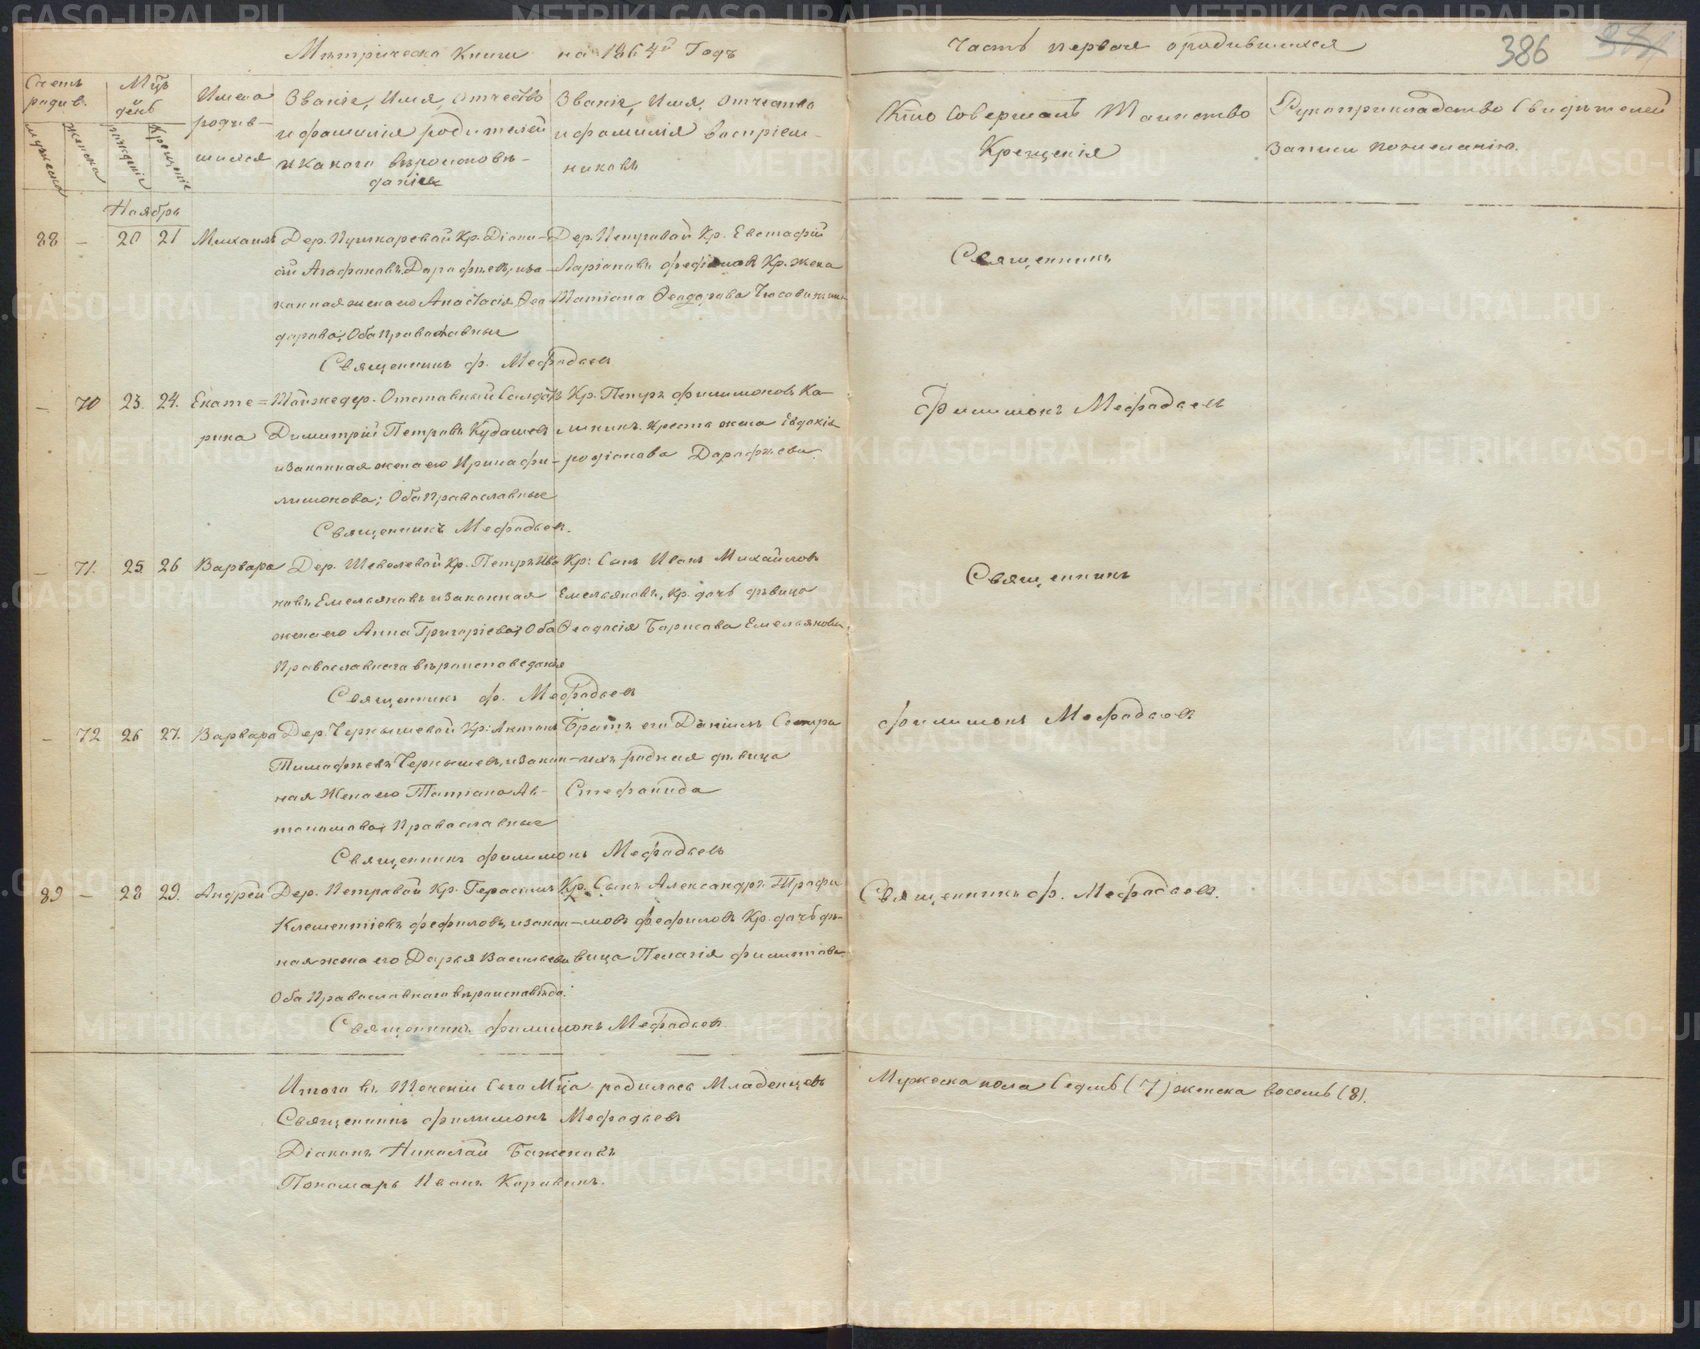 Метрическа Книги на 1864й Годъ
Часть первая о родившихся
386
Счетъ родив.
мужеска
женска
Мцъ день
рожденія
крещенія
Имена родив-
шихся
Званіе, Имя, отчество
и фамилія родителей
и какого вѣроисповѣ-
данія
Званіе, Имя, отчество
и фамилія воспріем-
никовъ
Кто Совершалъ Таинство
Крещенія
Рукоприкладство Свидѣтелей
Записи по желанію.
Ноябрь
88 – 20 21 Михаилъ
Дер. Пушкаревой Кр.
Агафоновъ Дорофѣевъ, иза-
конная жена его Анастасія Ѳео-
дорова; Оба Православные
Священникъ Ф. Мефодьевъ
Дер. Петровой Кр. Евстафій
Ларіоновъ Кр. жена
Татіана Ѳеодорова
Священникъ
– 70 23. 24. Екате=
рина
Отставный Солдатъ
Димитрій Петровъ Кудашевъ
и законная жена его Ирина Фи-
лимонова; Оба Православные
Священникъ Мефодьев.
Кр. Петръ Филимоновъ Ка-
жена Евдокія
Родіонова Дорофѣева.
Филимонъ Мефодьевъ
– 71. 25 26 Варвара
Дер. Шевелевой Кр. Петръ Ива
новъ Емельяновъ и законная
жена его Анна Григоріева; Оба
Православнаго вѣроисповеданія
Священникъ Ф. Мефодьевъ
Кр: Сынъ Иванъ Михайловъ
Емельяновъ, Кр. дочь дѣвица
Ѳеодосія Борисова Емельянова
Священникъ
– 72 26 27. Варвара
Дер. Чернышевой Кр: Антонъ
Тимофѣевъ Чернышевъ, и закон-
ная Жена его Татіана Ав-
тономова; Православные
Священникъ Филимонъ Мефодьевъ
Братъ его Даніилъ Сестра
ихъ родная дѣвица
Стефанида
Филимонъ Мефодьевъ
89 – 28 29. Андрей
Дер. Петровой Кр. Герасимъ
Клементіевъ Фефиловъ, и закон-
ная жена его Дарья Васильева
Оба Православнаго вѣроисповѣда.
Священникъ Филимонъ Мефодьев.
Кр. Сынъ Александръ Трофи
мовъ Фефиловъ Кр. дочь дѣ-
вица Пелагія
Священникъ Ф. Мефодьевъ.
Итого въ Теченіи Сего Мца родилось Младенцевъ
Мужеска пола Седмь (7) женска восемь (8).
Священникъ Филимонъ Мефодьевъ
Діаконъ Николай Баженовъ
Пономарь Иванъ Коровинъ.
METRIKI.GASO-URAL.RU